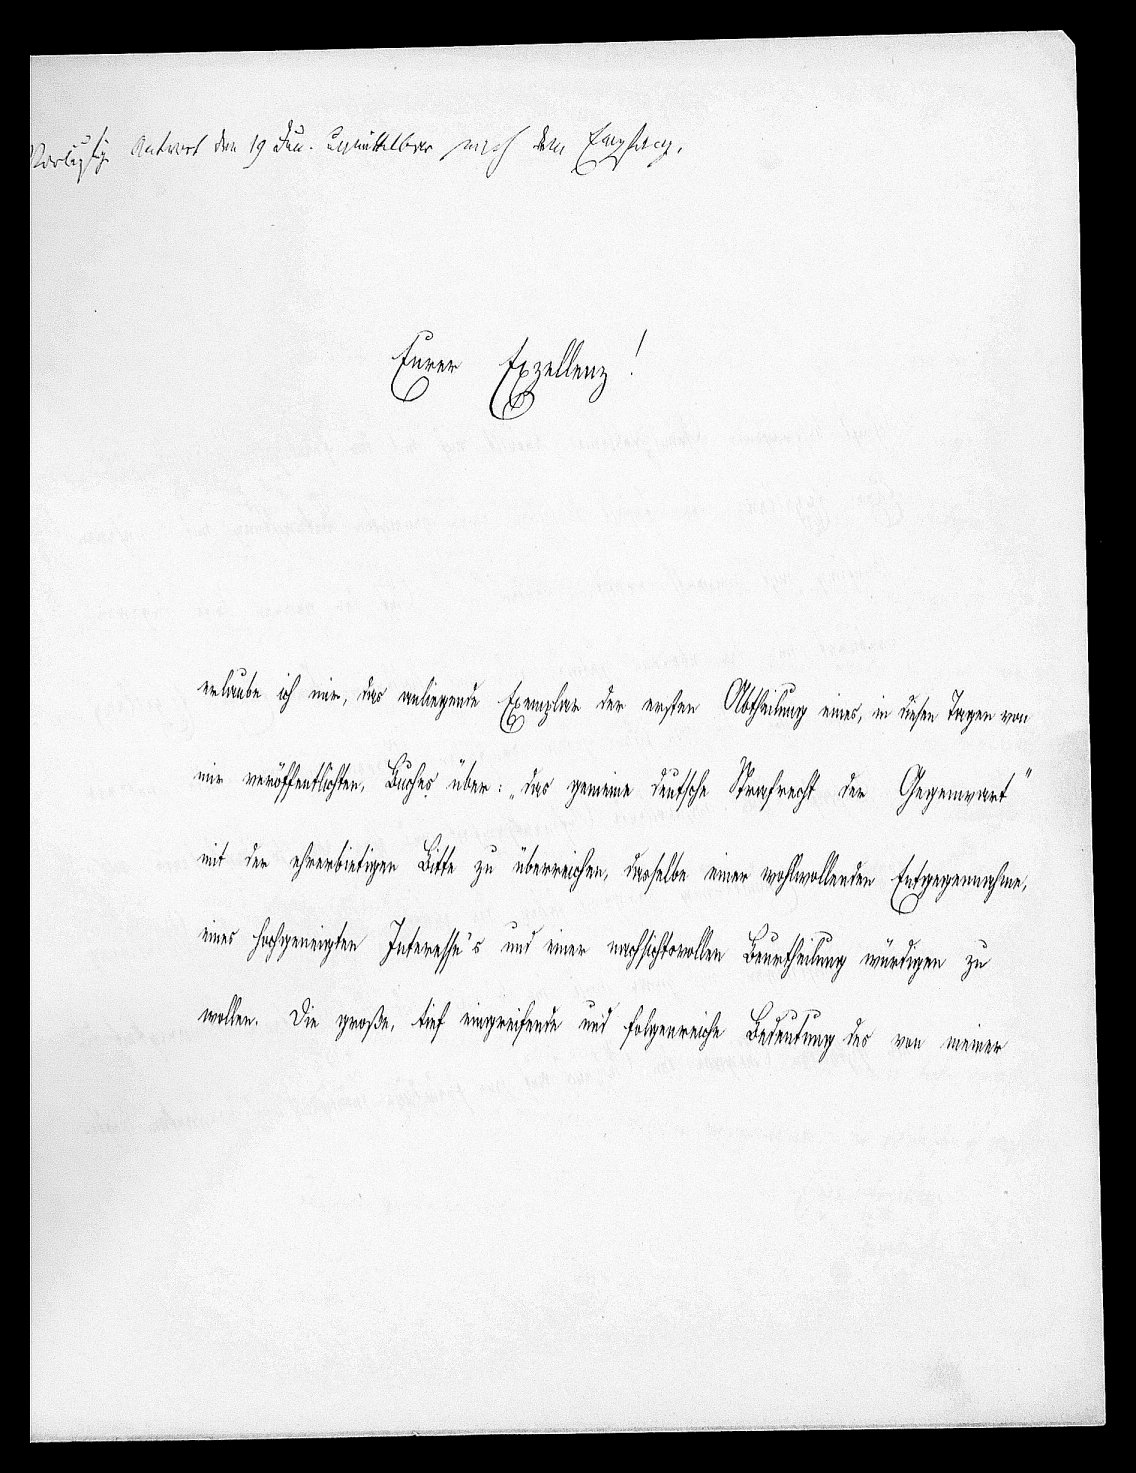 Vorläufige Antwort den 19 Jan. unmittelbar nach dem Empfang.
Eurer Exzellenz!
erlaube ich mir, das anliegende Exemplar der ersten Abtheilung eines, in diesen Tagen von
mir veröffentlichten, Buches über: „das gemeine deutsche Strafrecht der Gegenwart"
mit der ehrerbietigen Bitte zu überreichen, dasselbe einer wohlwollenden Entgegennahme,
eines hochgeneigten Interesse's und einer nachsichtsvollen Beurtheilung würdigen zu
wollen. Die große, tief eingreifende und folgenreiche Bedeutung des von meiner